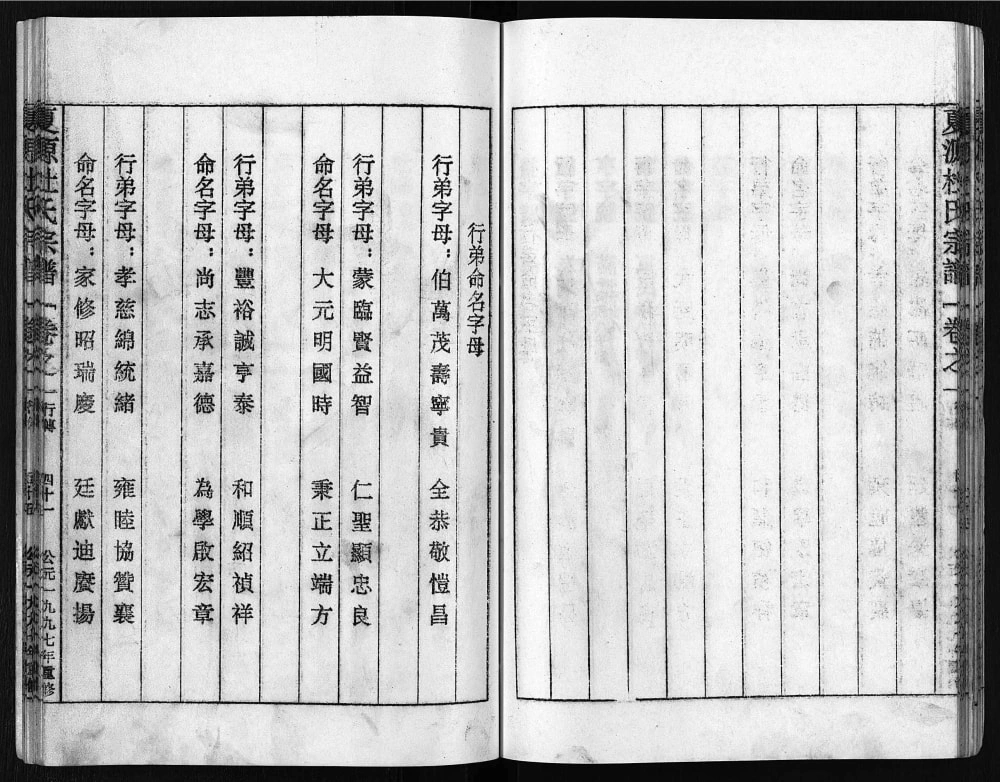 夏源杜氏宗譜　卷之一
行弟命名字母
行弟字母：伯萬茂壽寧貴　全恭敬愷昌
行弟字母：蒙臨賢益智　仁聖顯忠良
命名字母　大元明國時　秉正立端方
行弟字母：豐裕誠亨泰　和順紹禎祥
命名字母：尚志承嘉德　為學啟宏章
行弟字母：孝慈綿統緒　雍睦協贊襄
命名字母：家修昭瑞慶　廷獻迪賡揚
夏源杜氏宗譜　卷之一　行傳　四十一　公元一九九七年重修